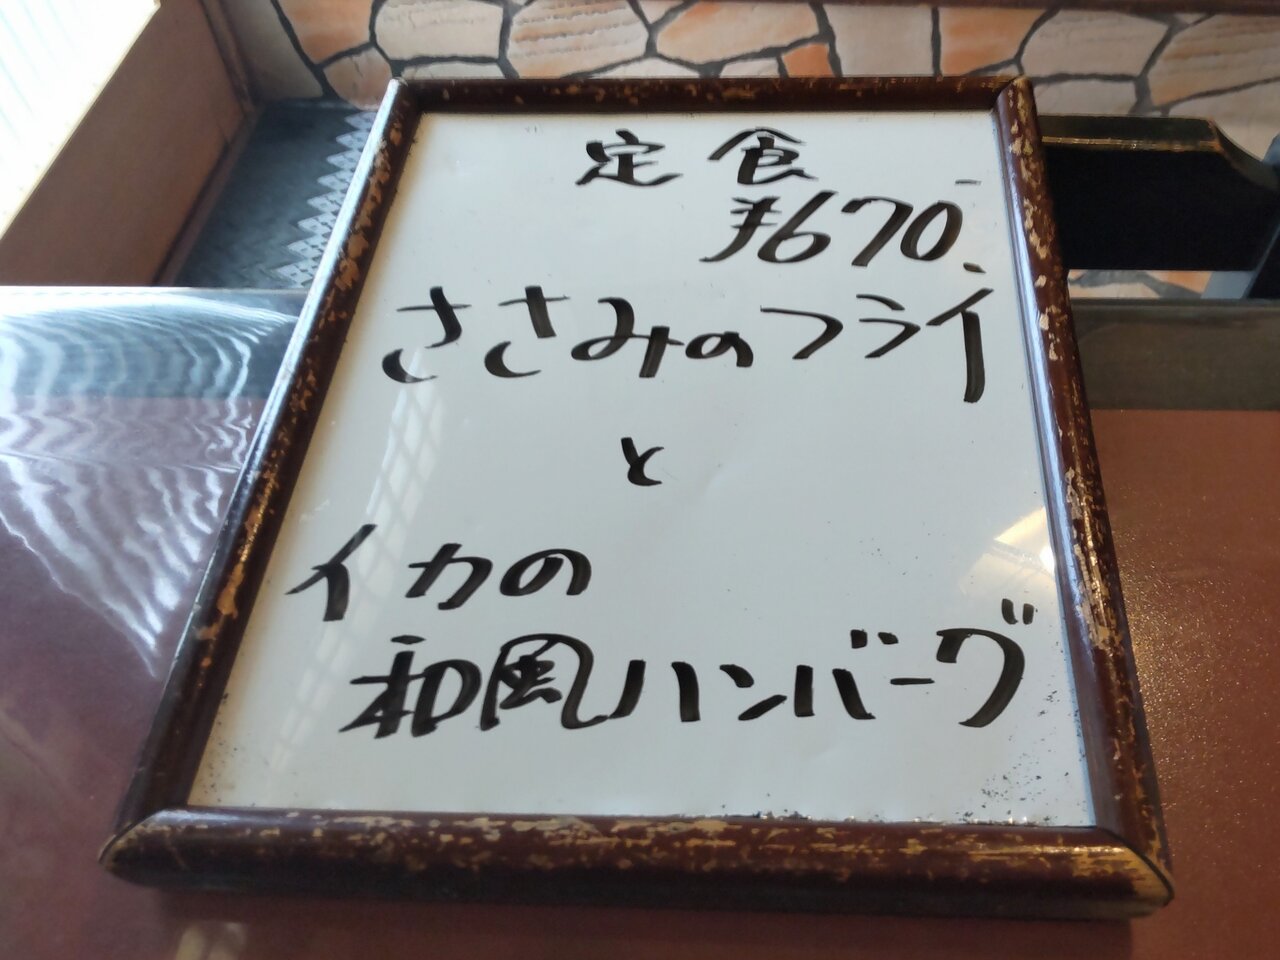 定食
¥670.-
ささみのフライ
と
イカの
和風ハンバーグ